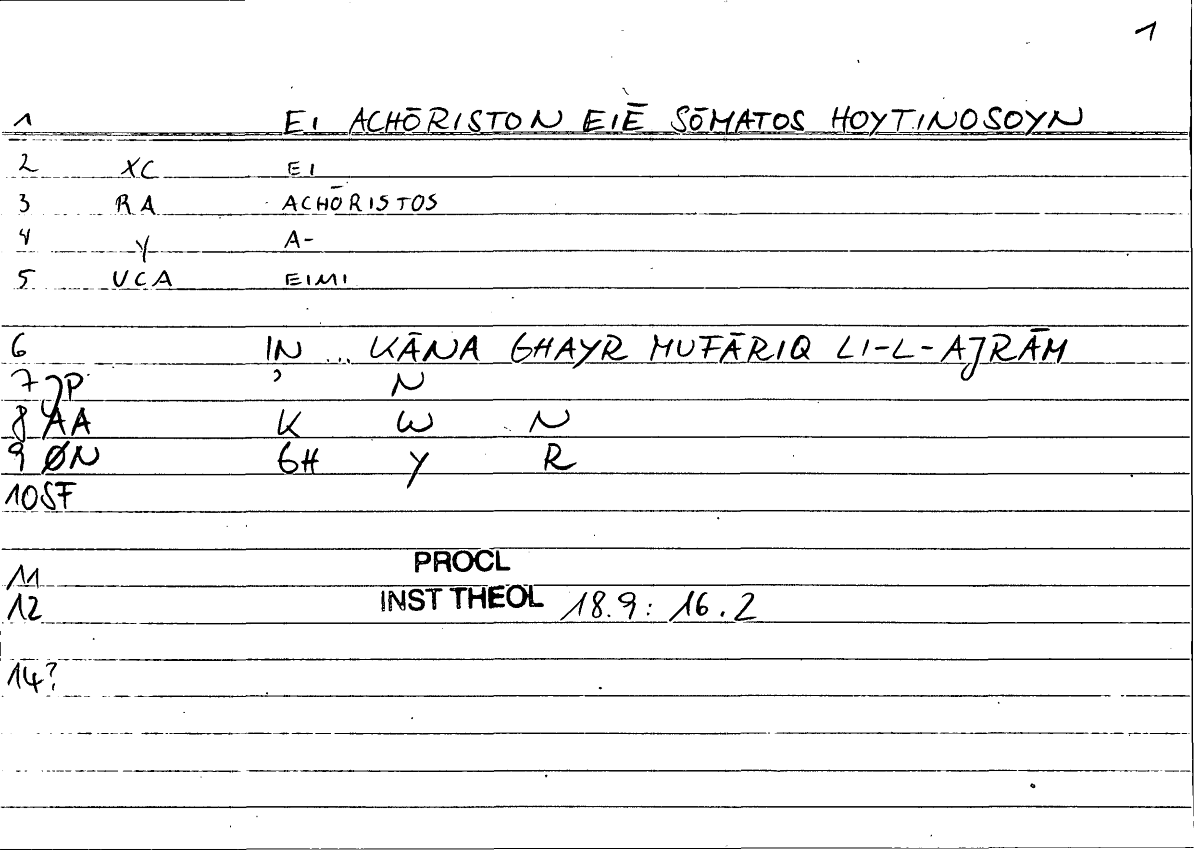 1
1 EI ACHŌRISTON EIĒ SŌMATOS HOYTINOSOYN
2 XC EI
3 RA ACHŌRISTOS
4 Y A-
5 VCA EIMI
6 IN ... KĀNA GHAYR MUFĀRIQ LI-L-AJRĀM
7 JP ʾ N
8 AA K W N
9 ØN GH Y R
10 SF
11 PROCL
12 INST THEOL 18.9: 16.2
14?